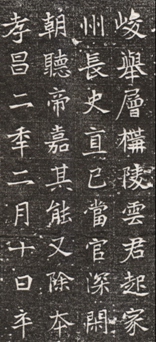 峻舉層構陵雲君起家
州長史直己當官深
朝聽帝嘉其能又除夲
孝昌二秊二月十日卒